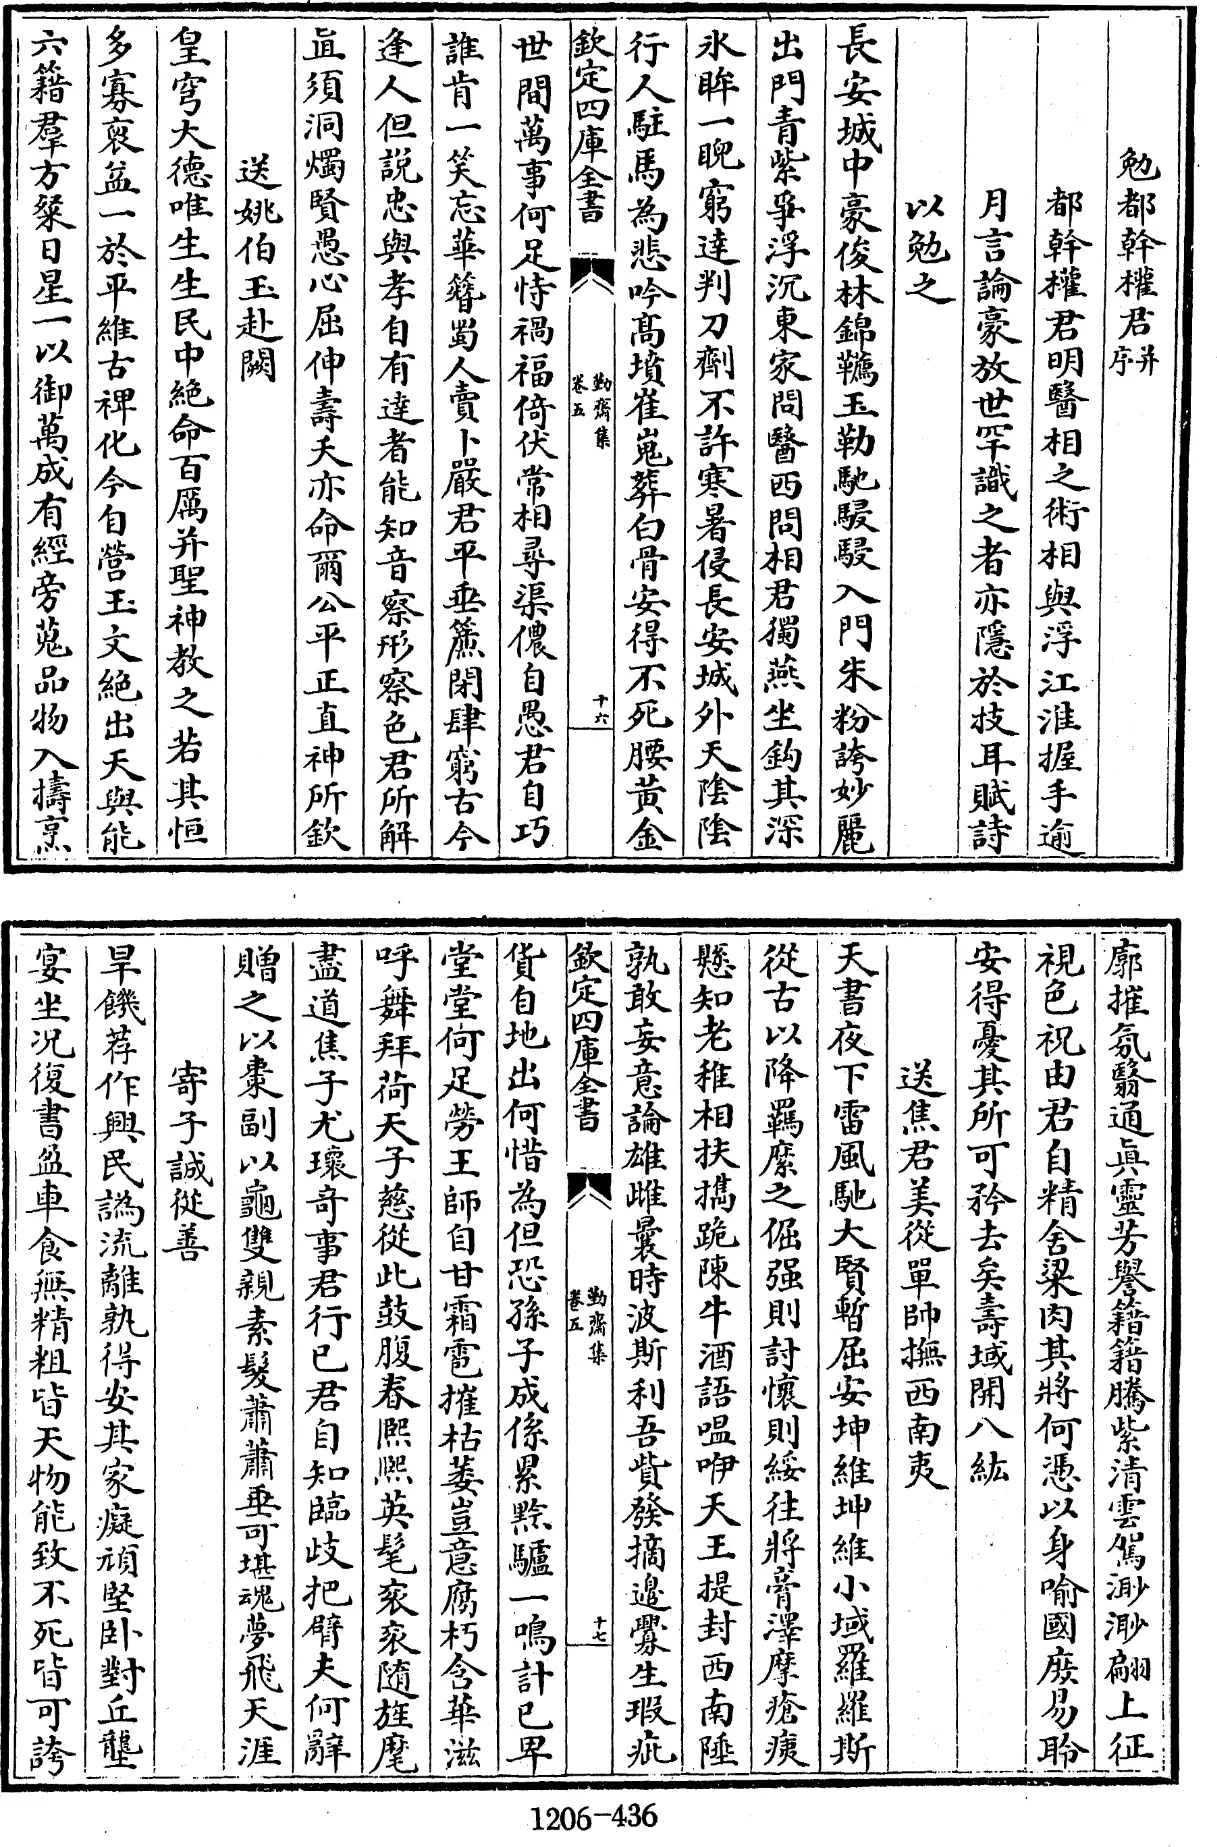 勉都幹權君并序
都幹權君明醫相之術相與浮江淮握手逾
月言論豪放世罕識之者亦隱於技耳賦詩
以勉之
長安城中豪俊林錦韉玉勒馳駸駸入門朱粉誇妙麗
出門青紫爭浮沉東家問醫西問相君獨燕坐鈎其深
氷眸一睨窮達判刀劑不許寒暑侵長安城外天陰陰
行人駐馬為悲吟高墳崔嵬葬白骨安得不死腰黄金
欽定四庫全書
勤齋集
卷五
十六
世間萬事何足恃禍福倚伏常相尋渠儂自愚君自巧
誰肯一笑忘華簪蜀人賣卜嚴君平垂簾閉肆窮古今
逢人但説忠與孝自有達者能知音察形察色君所解
直須洞燭賢愚心屈伸壽夭亦命爾公平正直神所欽
送姚伯玉赴闕
皇穹大德唯生生民中絶命百厲并聖神教之若其恒
多寡裒益一於平維古禆化今自營玉文絶出天與能
六籍羣方粲日星一以御萬成有經旁蒐品物入擣烹
廓摧氛翳通眞靈芳譽籍籍騰紫清雲駕渺渺翩上征
視色祝由君自精舍粱肉其將何憑以身喻國庶易聆
安得憂其所可矜去矣壽域開八紘
送焦君美從單帥撫西南夷
天書夜下雷風馳大賢暫屈安坤維坤維小域羅羅斯
從古以降羈縻之倔强則討懷則綏往將膏澤摩瘡痍
懸知老稚相扶攜跪陳牛酒語嗢咿天王提封西南陲
孰敢妄意論雄雌曩時波斯利吾貲發摘邉釁生瑕疵
欽定四庫全書
勤齋集
卷五
十七
貨自地出何惜為但恐孫子成係累黥驢一鳴計已卑
堂堂何足勞王師自甘霜雹摧枯萎豈意腐朽含華滋
呼舞拜荷天子慈從此鼓腹春熙熙英髦衮衮隨旌麾
盡道焦子尤瓌奇事君行已君自知臨歧把臂夫何辭
贈之以橐副以龜雙親素髮蕭蕭垂可堪魂夢飛天涯
寄子誠從善
旱饑荐作興民譌流離孰得安其家癡頑堅卧對丘壟
宴坐况復書盈車食無精粗皆天物能致不死皆可誇
1206-436